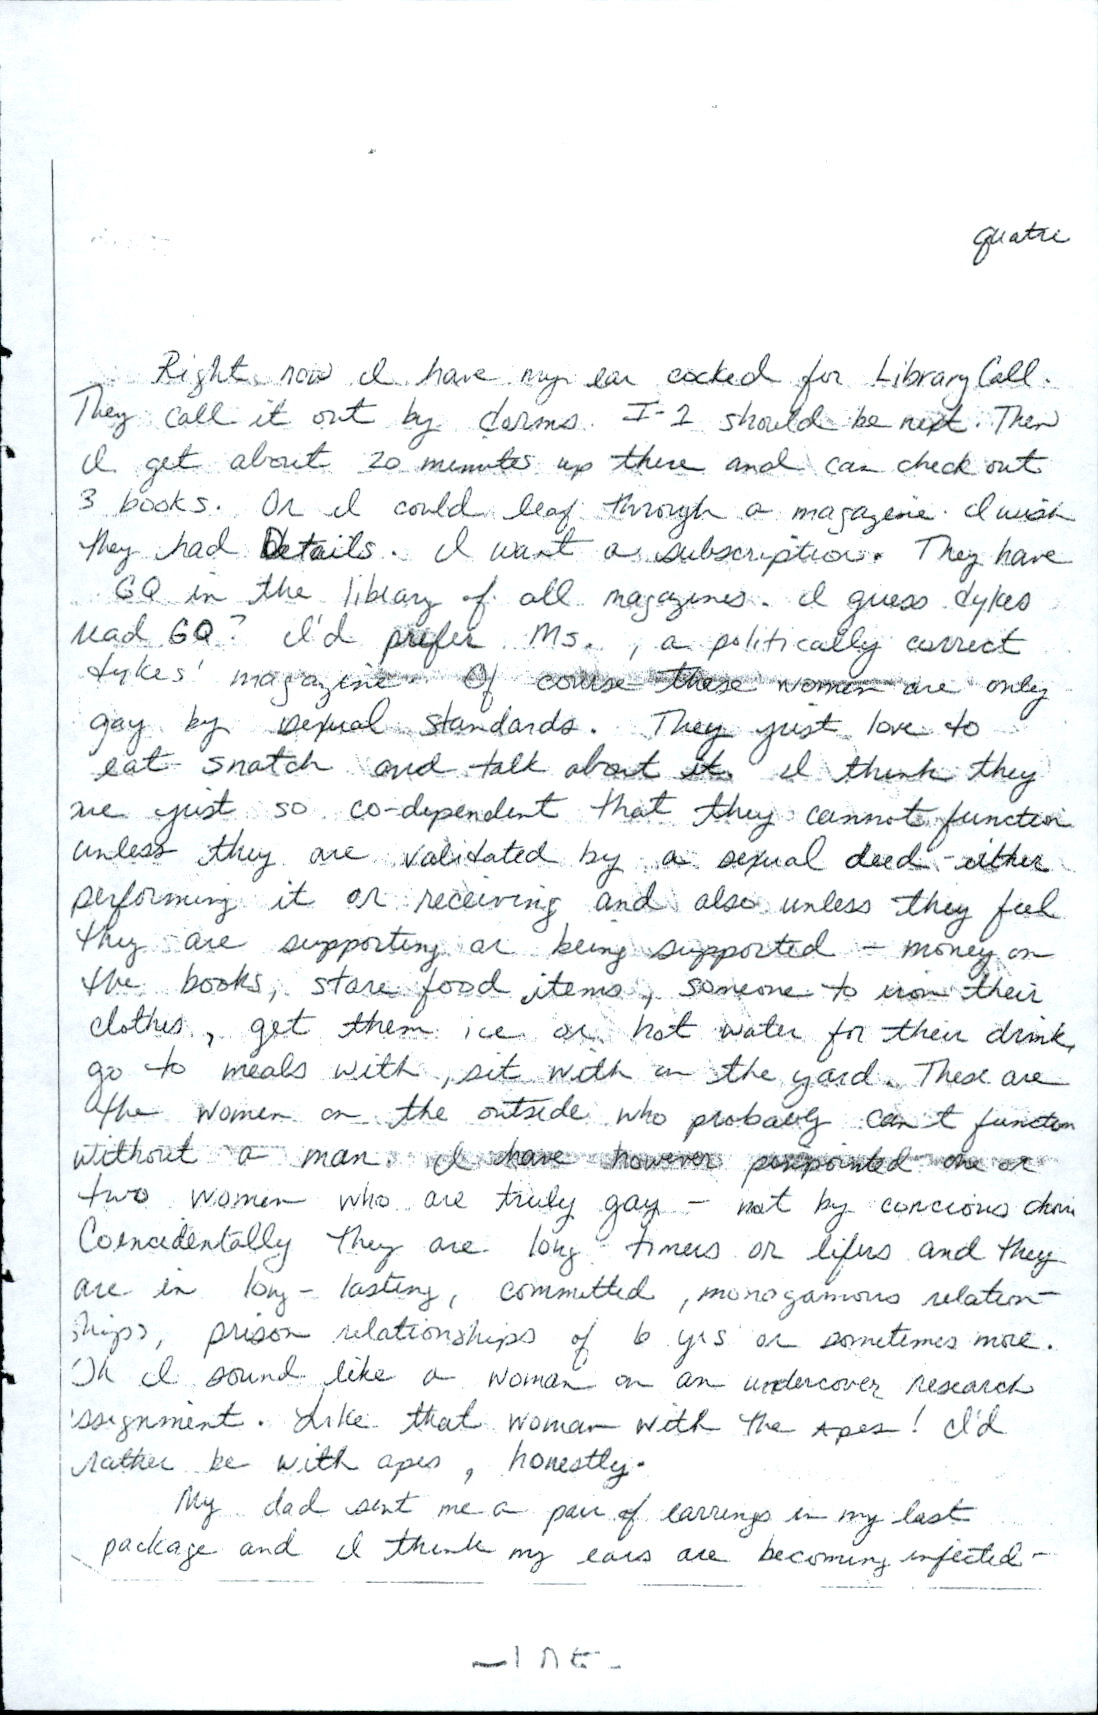 quatre
Right now I have my ear cocked for Library Call.
They call it out by dorms. I-2 should be next. Then
I get about 20 minutes up there and can check out
3 books. Or I could leaf through a magazine. I wish
they had Details. I want a subscription. They have
GQ in the library of all magazines. I guess dykes
read GQ? I'd prefer Ms., a politically correct
dykes' magazine. Of course these women are only
gay by sexual standards. They just love to
eat snatch and talk about it. I think they
are just so co-dependent that they cannot function
unless they are validated by a sexual deed - either
performing it or receiving and also unless they feel
they are supporting or being supported - money on
the books, store food items, someone to iron their
clothes, get them ice or hot water for their drink,
go to meals with, sit with in the yard. These are
the women on the outside who probably can't function
without a man. I have however pinpointed one or
two women who are truly gay - not by concious
Coincidentally they are long timers or lifers and they
are in long-lasting, committed, monogamous relation-
ships, prison relationships of 6 yrs or sometimes more.
Oh I sound like a woman on an undercover research
assignment. Like that woman with the apes! I'd
rather be with apes, honestly.
My dad sent me a pair of earrings in my last
package and I think my ears are becoming infected -